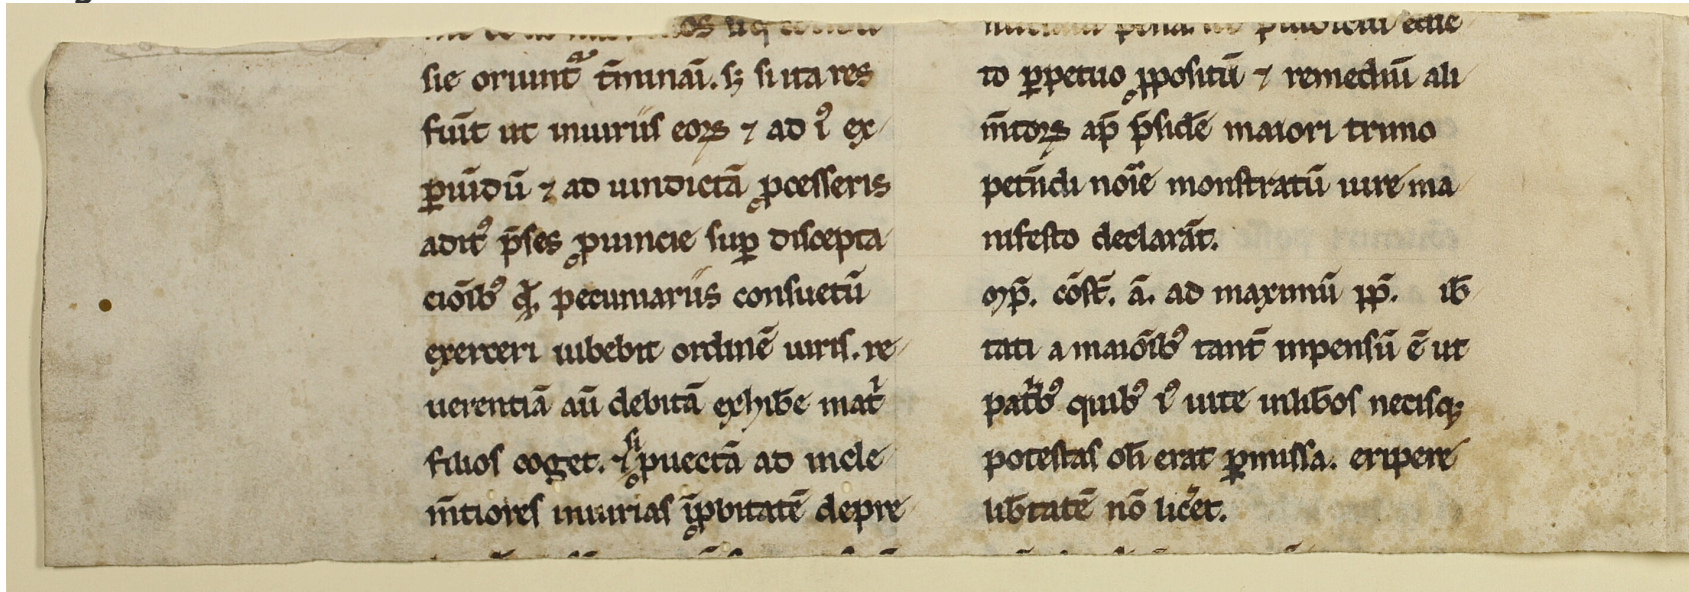 sie oriunt᷑ t̄minaī. sꝫ si ita res
fuīt ut iniuriis eoꝝ ⁊ ad iꝰ ex
ꝑiūdū ⁊ ad uindictā ꝓcesseris
aditꝰ p̄ses ꝓuincie suꝑ discepta
ciōibꝰ qͥdē pecuniariis consuetū
exerceri iubebit ordinē iuris. re
uerentiā aū debitā exhibe᷑ mat͛
filios coget. ⁊ si ꝓuectā ad incle
m̄tiores iniurias īꝓbitatē depre
to ꝑpetuo ꝓpositū ⁊ remediū ali
m̄toꝝ ap̄ p̄sidē maiori trimo
petūdi noīe monstratū iure ma
nifesto declarāt.
Imp̄. cōst̄. ā. ad maximū pp̄. ib̄
tati a maiōibꝰ tant̄ inpensū ē ut
pat͛bꝰ quibꝰ iꝰ uite inlib̄os necisqꝫ
potestas oli erat ꝑmissa. eripere
lib̄tatē nō lic͛et.